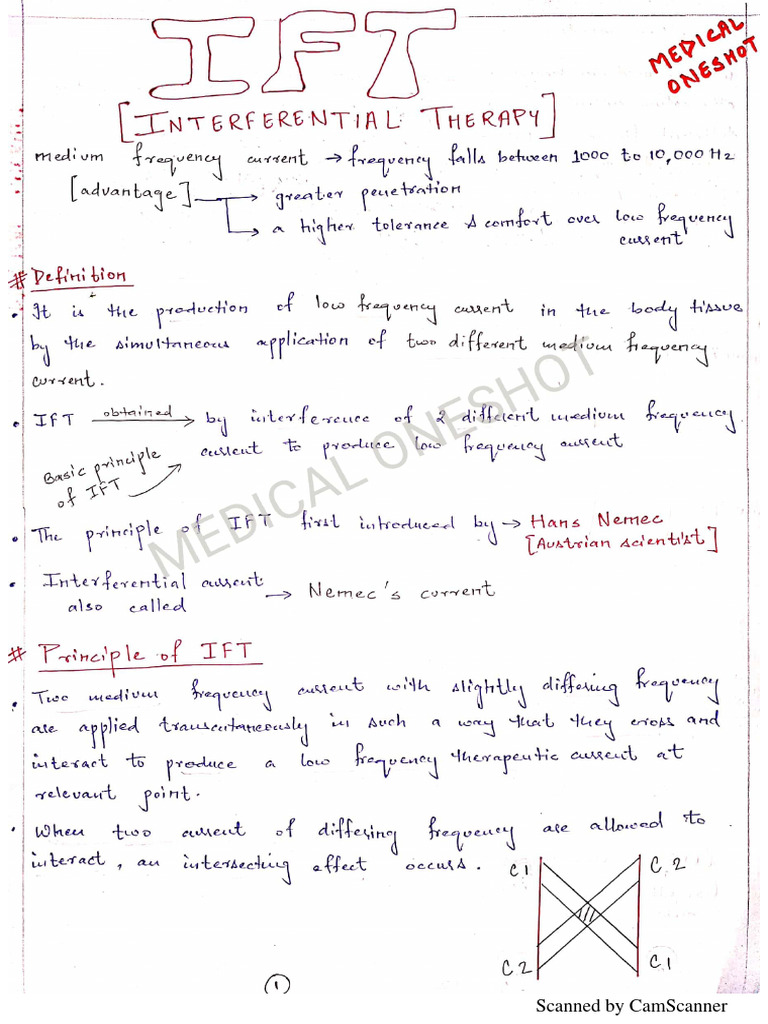 IFT
MEDICAL
ONESHOT
[INTERFERENTIAL THERAPY]
medium frequency current → frequency falls between 1000 to 10,000 Hz
[advantage] → greater penetration
→ a higher tolerance & comfort over low frequency
current
# Definition
• It is the production of low frequency current in the body tissue
by the simultaneous application of two different medium frequency
current.
• IFT obtained → by interference of 2 different medium frequency
current to produce low frequency current
Basic principle
of IFT
• The principle of IFT first introduced by → Hans Nemec
[Austrian scientist]
• Interferential current
also called → Nemec's current
# Principle of IFT
• Two medium frequency current with slightly differing frequency
are applied transcutaneously in such a way that they cross and
interact to produce a low frequency therapeutic current at
relevant point.
• When two current of differing frequency are allowed to
interact, an intersecting effect occurs.
C1 C2
C2 C1
1
MEDICAL ONESHOT
Scanned by CamScanner